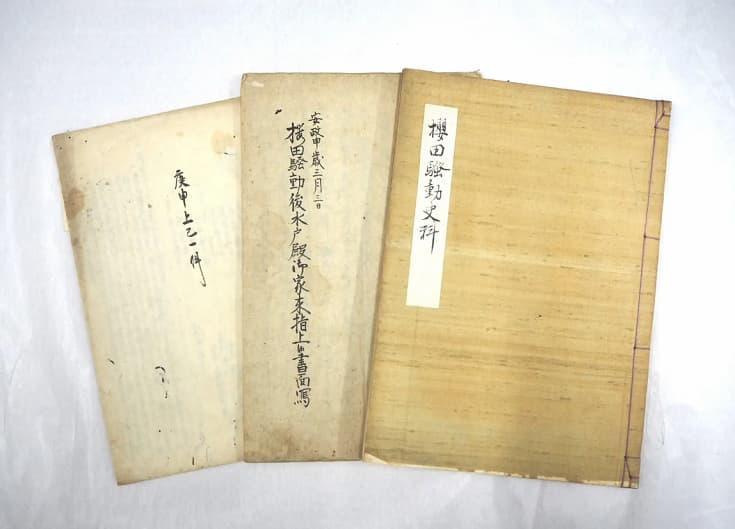 櫻田騒動史料
安政申歳三月三日
桜田騒動後水戸殿御家来指上候書面寫
庚申上巳一件